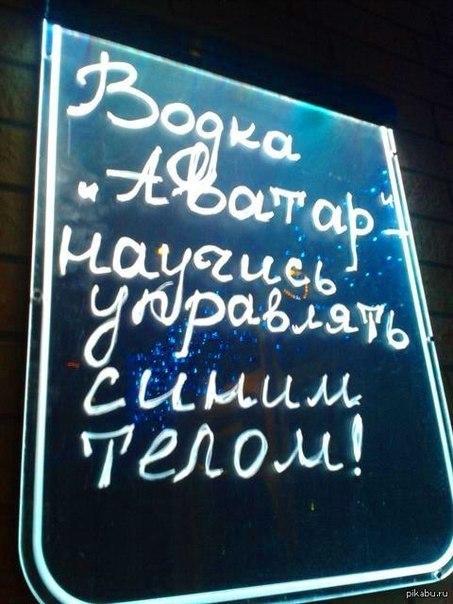 Водка
"Аватар" -
научись
управлять
синим
телом!
pikabu.ru